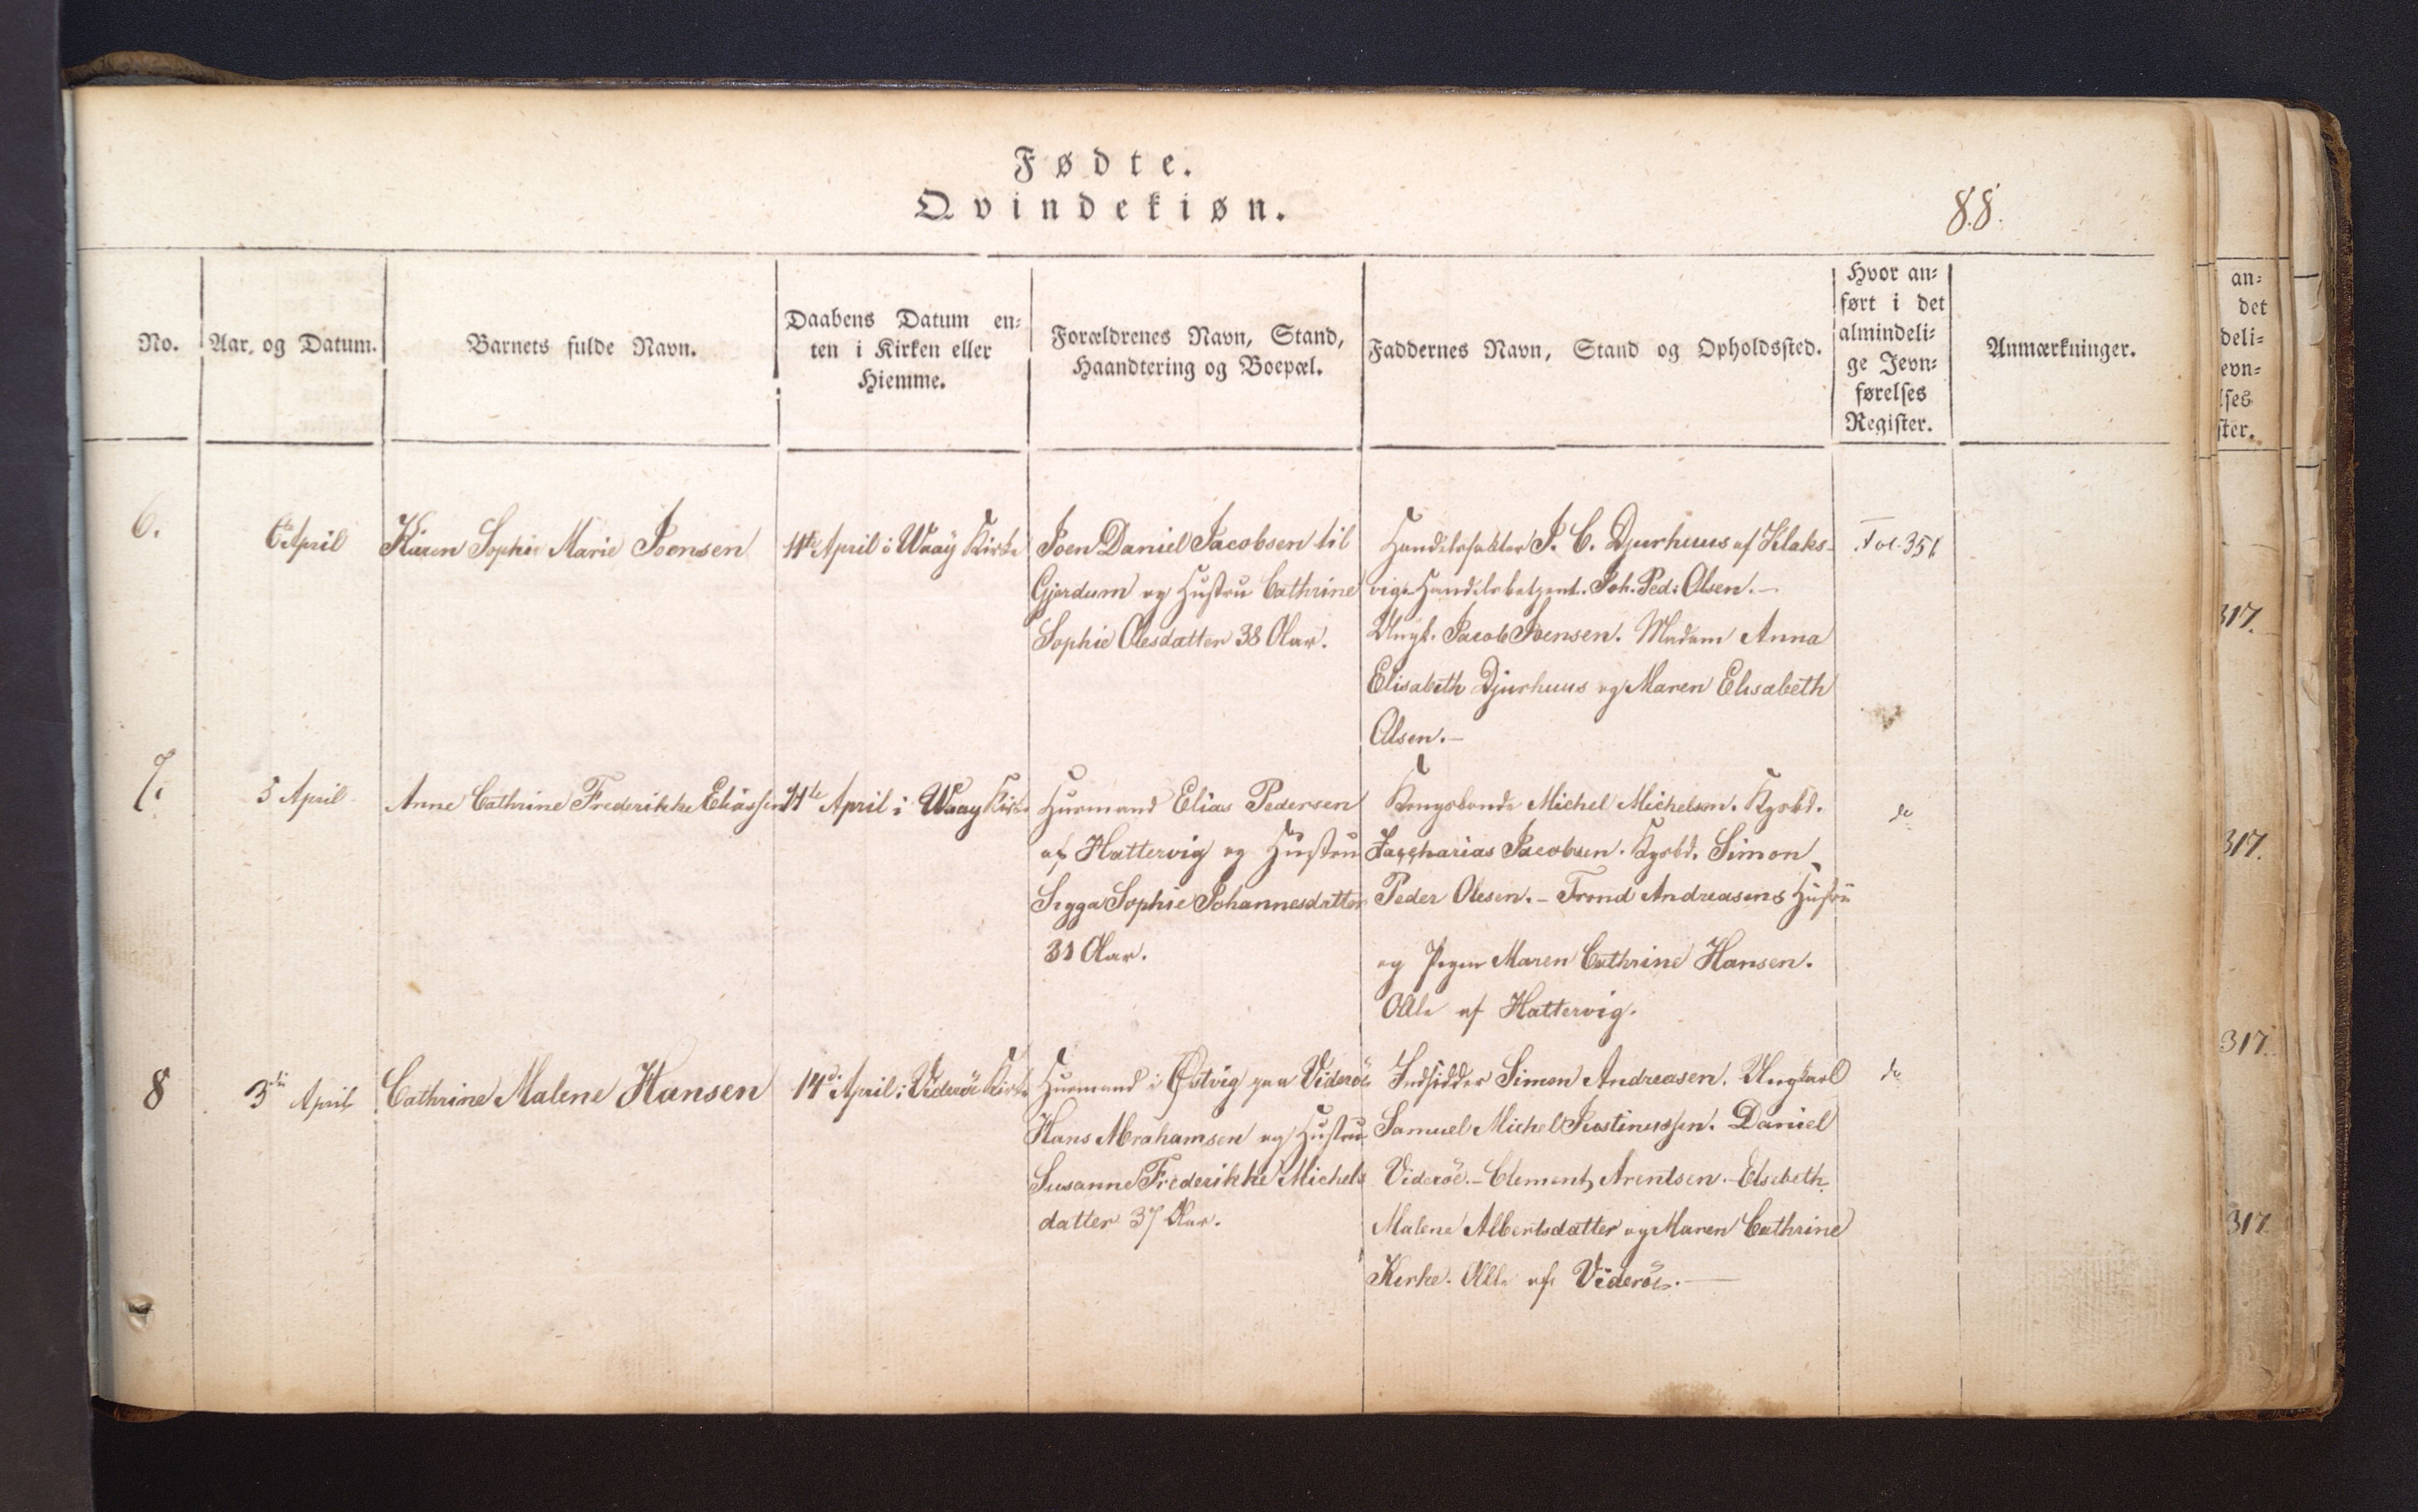 Fødte.
Qvindekiøn.
88.
No.
Aar, og Datum.
Barnets fulde Navn.
Daabens Datum en-
ten i Kirken eller
Hiemme.
Forældrenes Navn, Stand,
Haandtering og Boepæl.
Faddernes Navn, Stand og Opholdssted.
Hvor an-
ført i det
almindeli-
ge Jevn-
førelses
Register.
Anmærkninger.
6.
6te April
Karen Sophie Marie Joensen
11te April i Waay Kirke
Joen Daniel Jacobsen til
Gjerdum og Hustru Cathrine
Sophie Olesdatter 38 Aar.
Handelsfactor J. C. Djurhuus af Klaks-
vig. Joh. Ped: Olsen. -
Ungk. Jacob Joensen. Madam Anna
Elisabeth Djurhuus og Maren Elisabeth
Olsen. -
Fol. 351.
7.
5 April
Anne Cathrine Frederikke Eliassen
11te April i Waay Kirke
Huusmand Elias Pedersen
af Hattervig og Hustru
Sigga Sophie Johannesdatter
31 Aar.
Kongsbonde Michel Michelsen. Kgsbd.
Zaccharias Jacobsen. Kgsbd. Simon
Peder Olesen. - Trond Andreasens Hustru
og Pigen Maren Cathrine Hansen.
Alle af Hattervig.
do
8
3die April
Cathrine Malene Hansen
14de April i Viderøe Kirke
Huusmand i Østvig paa Viderøe
Hans Abrahamsen og Hustru
Susanne Frederikke Michels
datter 37 Aar.
Indsidder Simon Andreasen. Ungkarl
Samuel Michel Justinussen. Daniel
Viderøe. - Clement Arentsen. - Elsebeth
Malene Albertsdatter og Maren Cathrine
Kirke. Alle af Viderøe. -
do
an-
det
deli-
evn-
lses
ster.
317.
317.
317.
317